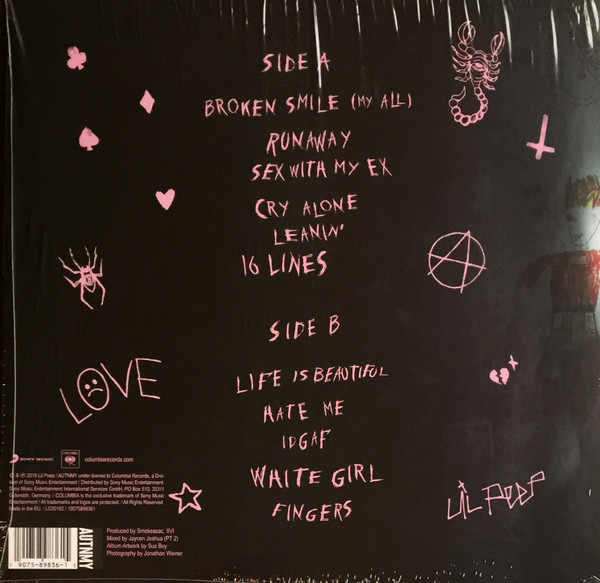 SIDE A
BROKEN SMILE (MY ALL)
RUNAWAY
SEX WITH MY EX
CRY ALONE
LEANIN'
16 LINES
SIDE B
LIFE IS BEAUTIFUL
HATE ME
IDGAF
WHITE GIRL
FINGERS
LOVE
LIL PEEP
SONY MUSIC
columbiarecords.com
& ℗ 2018 Lil Peep / AUTNMY under license to Columbia Records, a Div-
ion of Sony Music Entertainment / Distributed by Sony Music Entertainment.
Sony Music Entertainment International Services GmbH, PO Box 510, 33311
Gütersloh, Germany / COLUMBIA is the exclusive trademark of Sony Music
Entertainment / All trademarks and logos are protected. / All Rights Reserved
Made in the EU / LC00162 / 19075898361
9075-89836-1
AUTNMY
Produced by Smokeasac, IIVI
Mixed by Jaycen Joshua (PT 2)
Album Artwork by Sus Boy
Photography by Jonathan Weiner